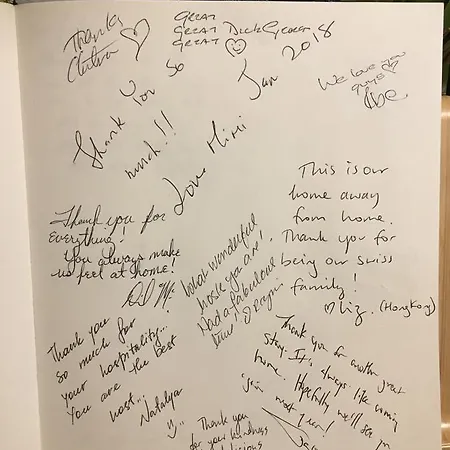 Thanks
GREAT
GREAT
GREAT
Jan 2018
Thank you so
much!!
Love Mimi
We love you
guys
Thank you for
everything!
You always make
us feel at home!
This is our
home away
from home.
Thank you for
being our swiss
family!
Liz. (HongKong)
What wonderful
hosts you are!
Had a fabulous
time!
Thank you
so much for
your hospitality...
You are the best
host...
Natalya
Thank you for another great
stay. It's always like coming
home. Hopefully we'll see
next year!
Thank you
for your kindness
delicious